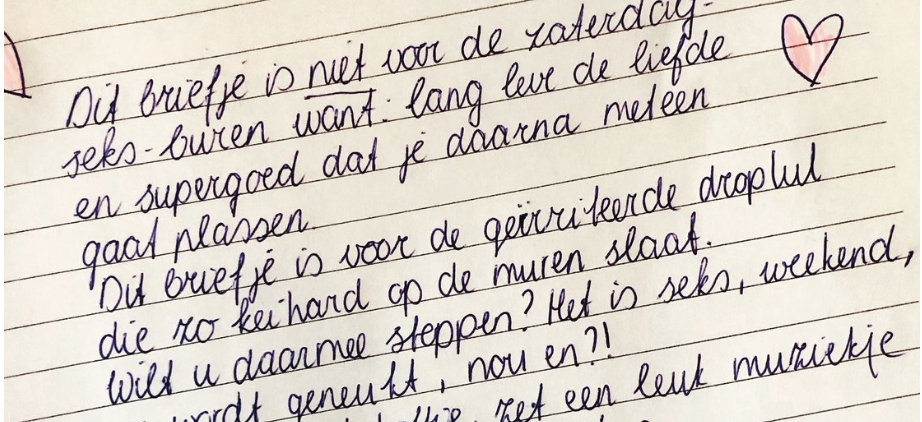 Dit briefje is niet voor de zaterdag-
seks-buren want: lang leve de liefde
en supergoed dat je daarna meteen
gaat plassen.
Dit briefje is voor de geïrriteerde droplul
die zo keihard op de muren slaat.
Wilt u daarmee stoppen? Het is seks, weekend,
wordt geneukt, nou en?!
zet een leuk muziekje